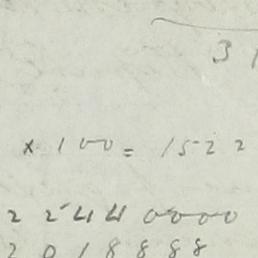 3 1
x 100 = 1522
2 2440000
2 018888